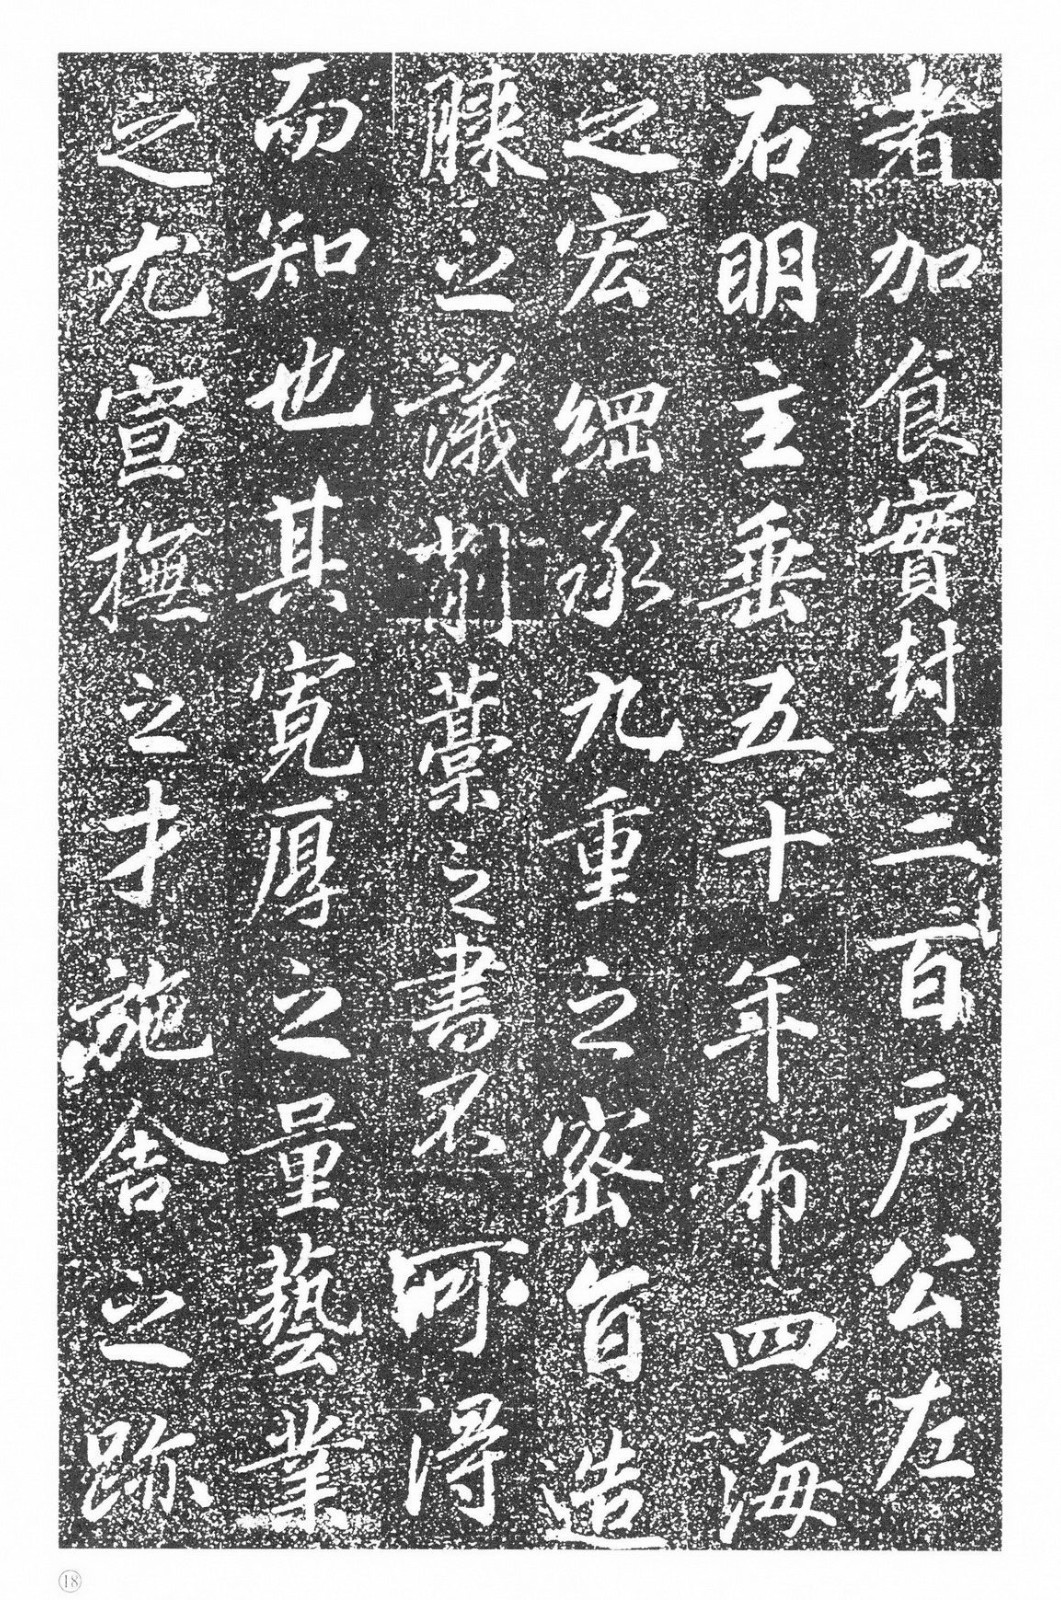 者加食實封三百戶公左
右明主垂五十年布四海
之宏綱承九重之密旨造
膝之議削藁之書不可得
而知也其寬厚之量藝業
之尤宣撫之才施舍之跡
18